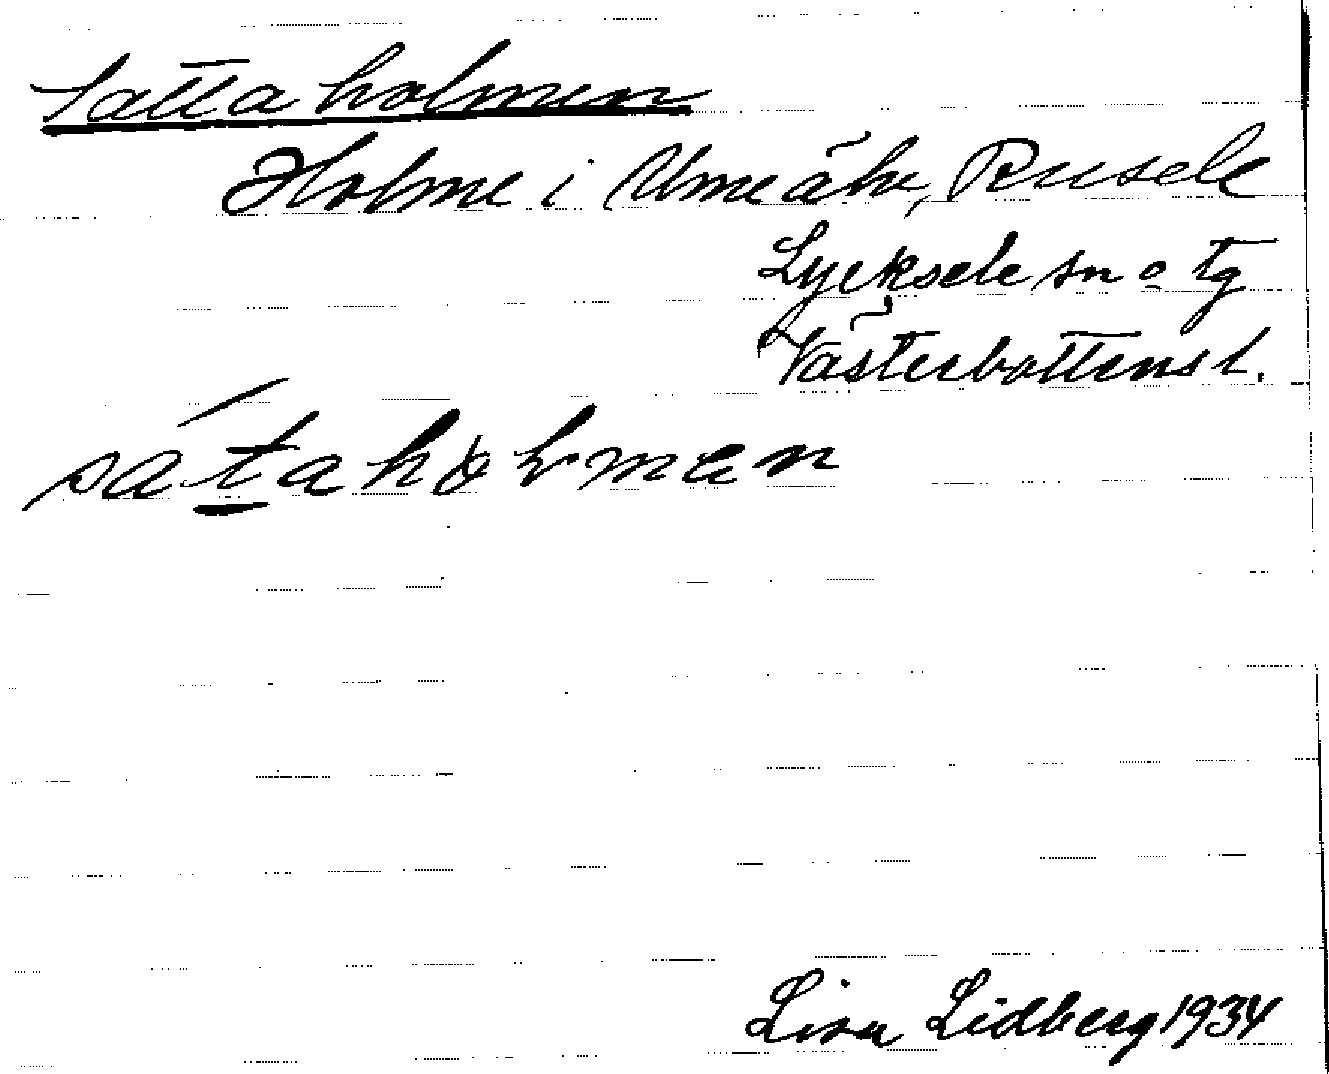 Sattaholmen
Holme i Umeälv, Rusele
Lycksele sn o tg
Västerbottens l.
sátahólmen
Lisa Lidberg 1934